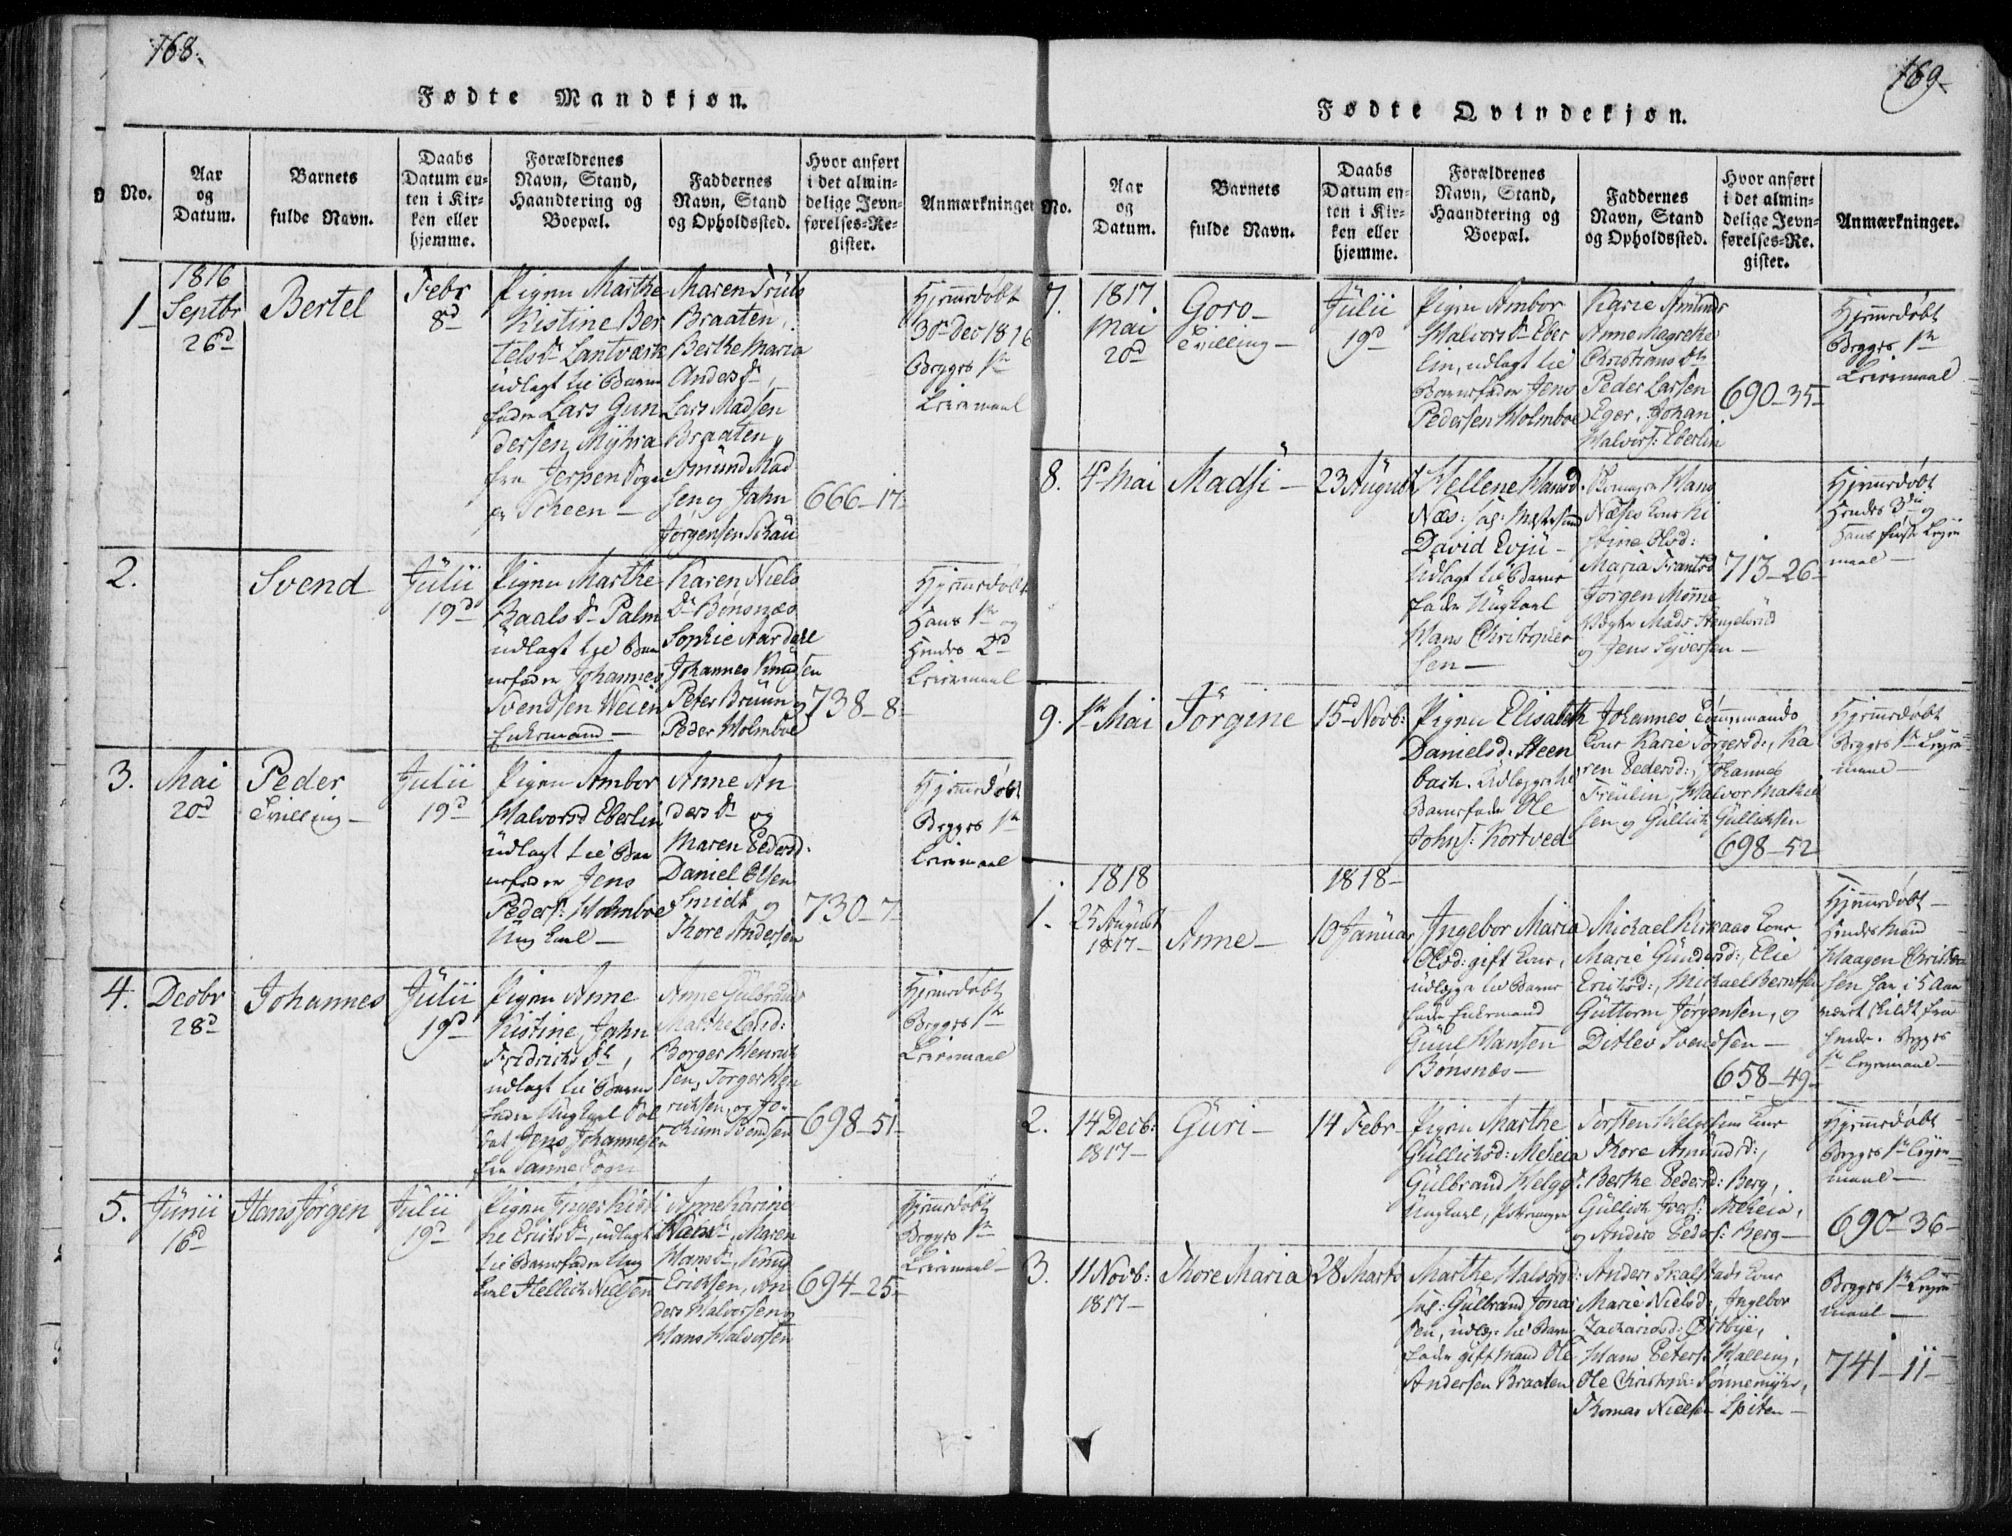 168.
Fødte Mandkjøn.
No.
Aar
og
Datum.
Barnets
fulde Navn.
Daabs
Datum en-
ten i Kir-
ken eller
hjemme.
Forældrenes
Navn, Stand,
Haandtering og
Boepæl.
Faddernes
Navn, Stand
og Opholdssted.
Hvor anført
i det almin-
delige Jevn-
førelses-Re-
gister.
Anmærkninger
1
1816
Septbr
26d
Bertel
Febr
8d
Pigen Marthe
Kistine Ber
udlagt til Barne
fader Lars Gun
dersen Myhra
fra Jerpen Sogn
Maren
Braaten,
Berthe Maria
Anders
Lars Madsen
Braaten,
Amund Mad
sen og Jahn
Jørgensen
666-17-
Hjemmedøbt
30te Dec 1816
Begges 1ste
Leiermaal
2.
Svend
Julii
19d
Pigen Marthe
Palm
udlagt til Bar
nefader Johannes
Svendsen Weien
Enkemand
Karen Niels
Bønsnæs
Sophie
Johannes Knudsen
Peter Bruun og
Peder Holmboe
738-8-
Hjemmedøbt
Hans 1ste og
Hendes 2d
Leiermaal
3.
Mai
20d
Peder
Tvilling
Julii
19d
Pigen Ambor
Halvorsd Eberlin
udlagt til Bar
nefader Jens
Peders: Holmboe
Ung Karl
Anne An
ders og
Maren Pedersd:
Daniel Olsen
Smidt og
Thore Andersen
730-7-
Hjemmedøbt
Begges 1ste
Leiermaal
4.
Decbr
28d
Johannes
Julii
19d
Pigen Anne
Kistine Jahn
Fredrichs
udlagt til Barne
fader Ung Karl Sol
dat Jens Johannesen
fra Sanne Sogn
Anne Gulbrands
Marthe
Borger Henrich
sen, Torger Hen
richsen, og Jo-
chum Svendsen
698-51-
Hjemmedøbt
Begges 1ste
Leiermaal
5.
Junii
16d
Hans Jørgen
Julii
19d
Pigen Inger Kisti
ne Erichs, udlagt
til Barnefader Ung
Karl Hellich Nielsen
Anne Karine
Niels, Maren
Hans, Knud
Ericksen, An
ders Halvorsen og
Hans Halvorsen
694-25-
Hjemmedøbt
Begges 1ste
Leiermaal
169
Fødte Qvindekjøn.
No.
Aar
og
Datum.
Barnets
fulde Navn.
Daabs
Datum en-
ten i Kir-
ken eller
hjemme.
Forældrenes
Navn, Stand,
Haandtering og
Boepæl.
Faddernes
Navn, Stand
og Opholdssted.
Hvor anført
i det almin-
delige Jevn-
førelses-Re-
gister.
Anmærkninger.
7.
1817
Mai
20d
Goro
Tvilling
Julii
19d
Pigen Ambor
Halvors Eber
lin, udlagt til
Barnefader Jens
Pedersen Holmboe
Karie Amunds
Anne Magrethe
Christians
Peder Larsen
Eger, Johan
Halvors: Eberlin
690-35-
Hjemmedøbt
Begges 1ste
Leiermaal
8.
4d Mai
Madsi
23 August
Hellene Hansd
Næs:
David Evju
Udlagt til Barne
fader Ungkarl
Hans Christopher
sen
Hans
Næses Kone Ki
stine Olsd:
Maria Frantsd
Jørgen Moene
Mads
og Jens Syversen
713-26-
Hjemmedøbt
Hendes 3die og
Hans første Leyer
maal
9.
1ste Mai
Jørgine
15d Novb:
Pigen Elisabeth
Danielsd: Steen
bach. Udlægger til
Barnefader Ole
Johns: Kortved
Johannes
Kone Karie Torgersd:, Ka
ren Pedersd:, Johannes
Halvor Mathie
sen og Gullich Gullichsen
698-52
Hjemmedøbt
Begges 1ste Leyer-
maal
1.
1818
25 August
1817
Anne
1818
10 Januar
Ingebor Maria
Olsd: gift Kone,
udlægger til Barne
fader Enkemand
Guul Hansen
Bønsnæs
Michael Kirkaas Kone
Marie Gundersd:, Elie
Ericksd:, Michael Berntsen
Guttorm Jørgensen, og
Ditlev Svendsen
658-49-
Hjemmedøbt
Hendes Mand
Haagen Christen
sen har i 5 Aar
været skildt fra
hende. Begges
1ste Leyermaal
2.
14 Decb:
1817
Guri
14 Febr
Pigen Marthe
Gullichsd: Meheia
Gulbrand Helges:
Ungkarl,
Torsten Helgesens Kone
Thore Amundsd:,
Berthe Pedersd: Berg,
Gullich Joes: Meheia,
og Anders Peders: Berg
Hjemmedøbt
Begges 1ste Leyer-
maal
690-36-
3.
11 Novb:
1817
Thore Maria
28 Marts
Marthe Halvorsd:
Gulbrand Jonas
sen, udlæg: til Barne
fader gift Mand Ole
Andersen Braaten
Anders Skalstads Kone
Marie Nielsd:, Ingebor
Zachariasd: Østbye,
Hans Peters: Walling,
Ole Christoph: Sønnemyhr,
Thomas Nielsen Spiten
Begges 1ste Leyer
maal
741-11-